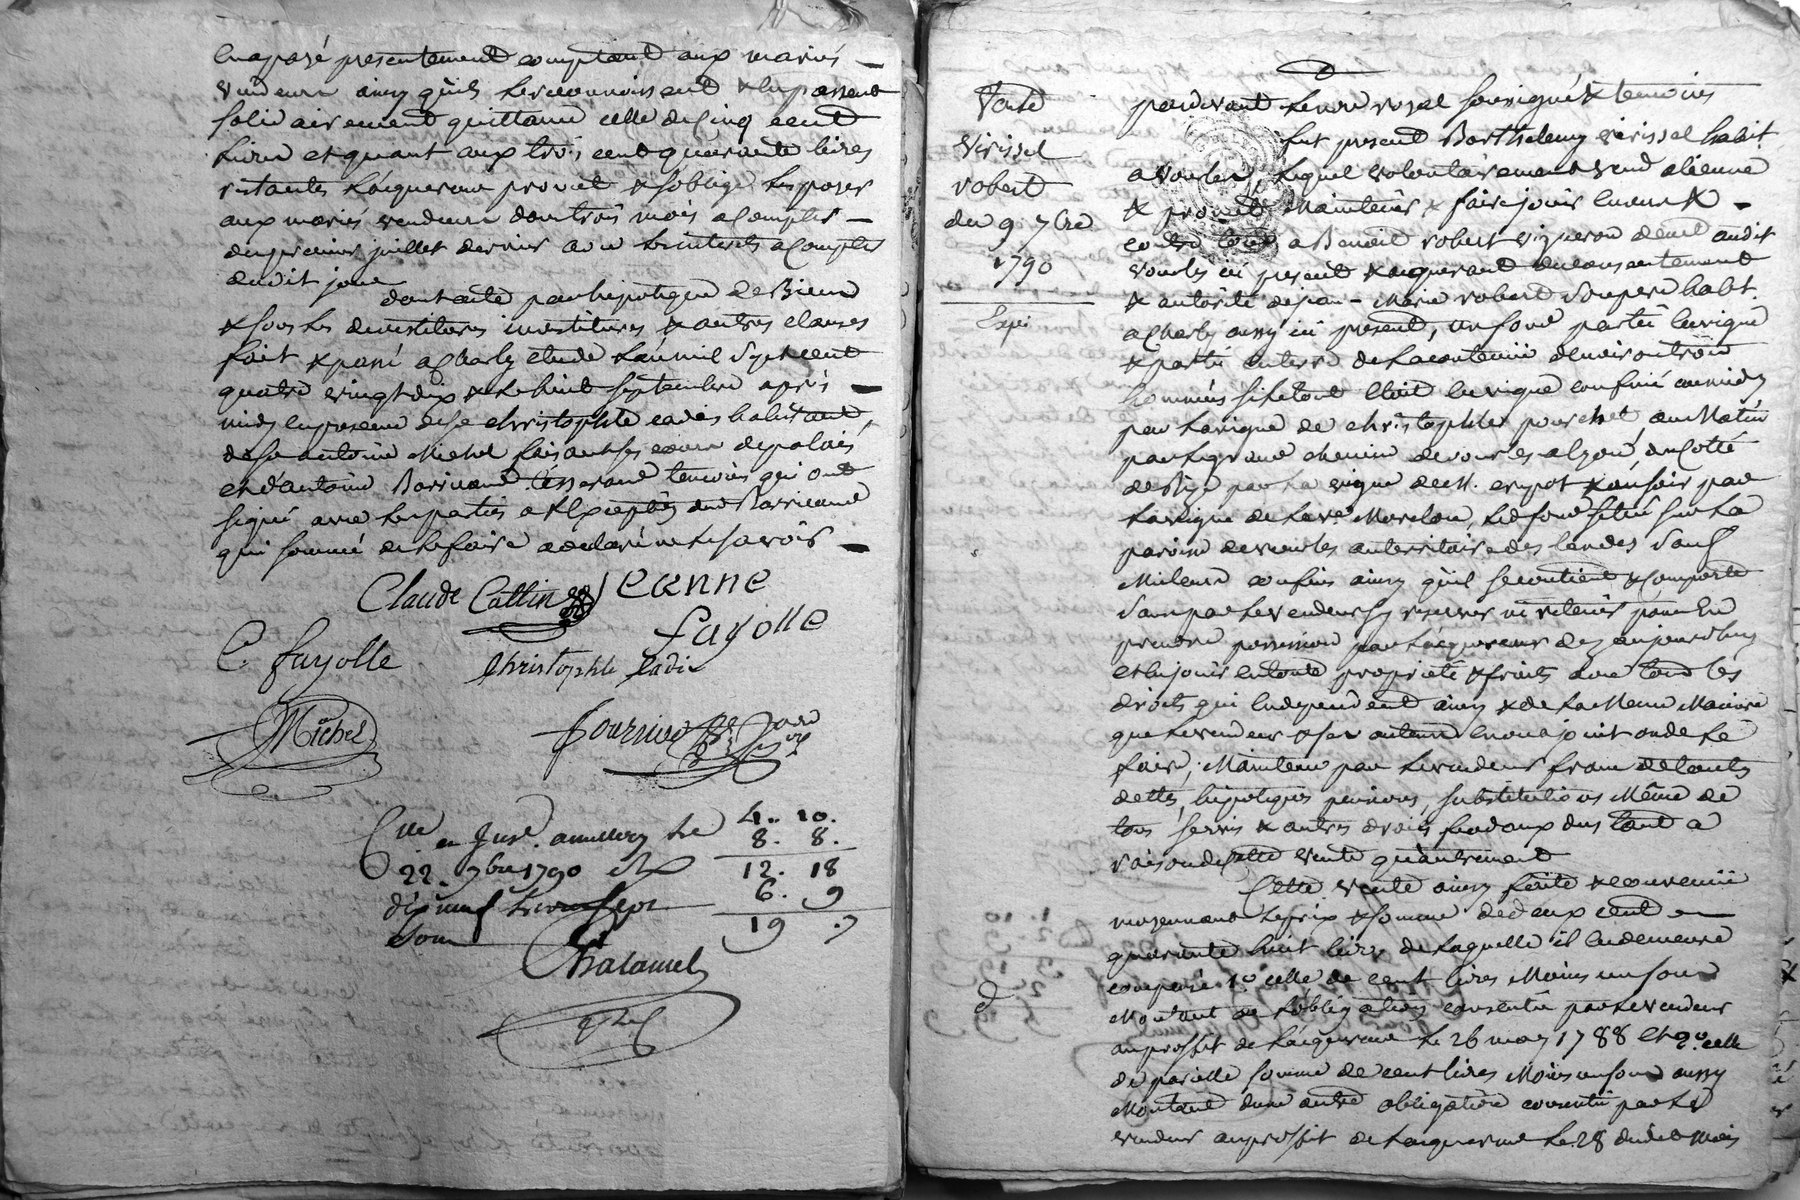 en a payé presentement comptant aux mariés
vendeurs ainsy qu'ils le reconnoissent & en passent
solidairement quittance celle de cinq cent
livres et quant aux trois cent quarante livres
restantes l'acquereur promet & s'oblige les payer
aux mariés vendeurs dans trois mois a compter
du premier juillet dernier avec les interets a compter
dudit jour
dont acte par hipoteque de Biens
& sous les devestitures investitures & autres clauses
fait & passé a Charly etude l'an mil sept cent
quatre vingt dix & le huit septembre après
midy en presence de Sr Christophle cadis habitant,
de Sr antoine Michel faisant ses cours de palais
et d'antoine Barricand tisserand temoins qui ont
signé avec les parties a l'exception dud Barricand
qui sommé de le faire a declaré ne le savoir
Claude Cattin Jeanne
fayolle
C. fayolle
Christophle Cadis
Michel
fournier
Clle en Jusd. amillery le 4. 10.
8. 8.
22. 7bre 1790 12. 18
6. 9
dix neuf livres sept 19 7
sous
Chalamel
Vente
Virissel
robert
du 9 7bre
1790
Expé
pardevant le nore royal soussigné & temoins
fut present Barthelemy virissel habit.
a vourles, lequel volontairement vend aliene
& promet maintenir & faire jouir envers &
contre tous a Benoit robert vigneron demt audit
vourles ici present & acquerant du consentement
& autorité de jean-Marie robert son pere habt.
a Charly aussy ici present, un fond partie en vigne
& partie en terre de la contenüe d'environ trois
hommées si le tout etoit en vigne confiné au midy
par la vigne de christophle pourchet, au Matin
par le grand chemin de vourles a lyon, du cotté
de Bize par la vigne de M. crepot & au soir par
la vigne de la ve Morelon, led fond situé sur la
paroisse de vourles au territoire des landes sauf
Meilleurs confins ainsy qu'il se contient & comporte
sans par le vendeur s'y reserver ni retenir pour en
prendre possession par l'acquereur dez aujourdhuy
et en jouir en toute propriété & fruits avec tous les
droits qui en dependent ainsy & de la Meme Maniere
que le vendeur & ses auteurs en ont jouit ou de le
faire; Maintenu par le vendeur franc de touts
dettes, hipoteques, pensions, substitutions Même de
tous servis & autres droits feodaux dus tant a
raison de cette vente qu'autrement
Cette vente ainsy faite & convenüe
moyennant le prix & somme de deux cent
quarante huit livres de laquelle il en demeure
compensé 1o. celle de cent livres Moins un sou
Montant de l'obligation consentie par le vendeur
au proffit de l'acquereur le 26 may 1788 et 2o. celle
de pareille somme de cent livres Moins un sou aussy
Montant d'une autre obligation consentie par le
vendeur au proffit de l'acquereur le 28 dudit Mois